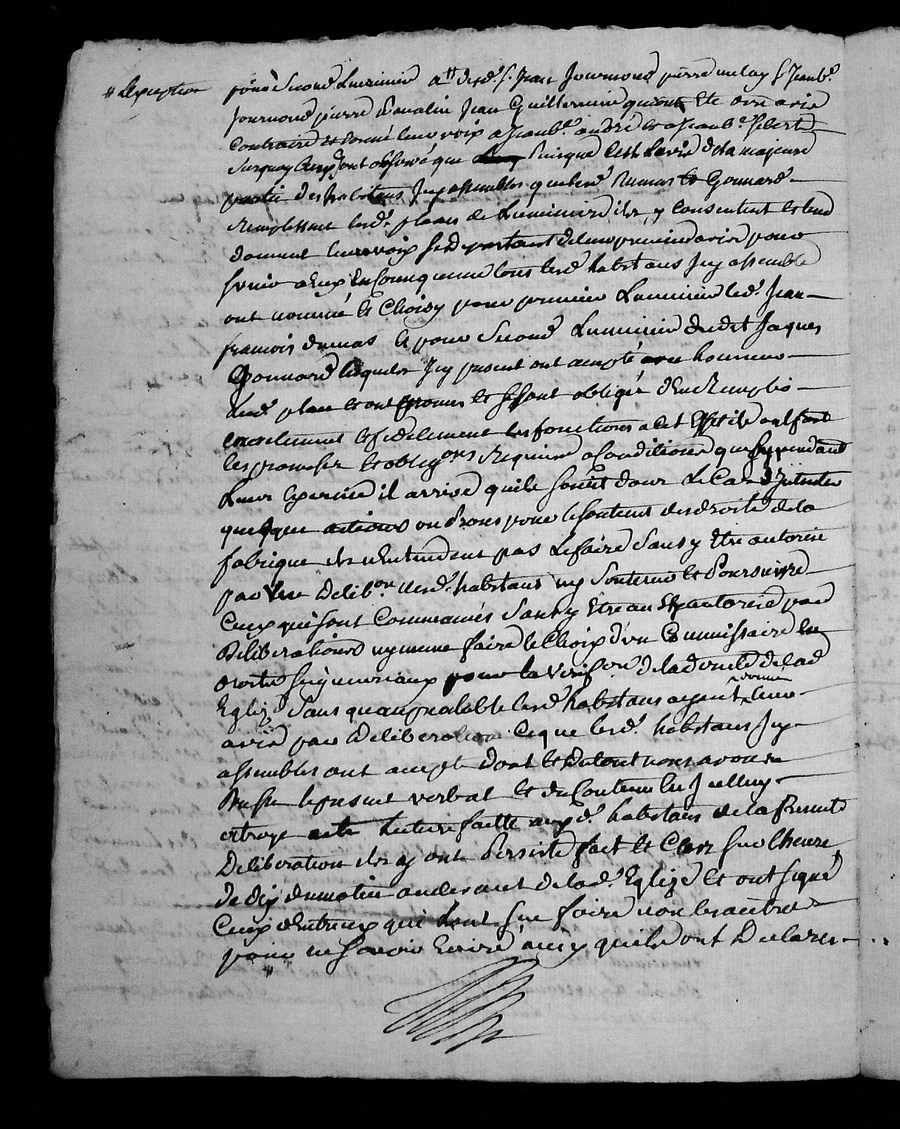 # Lexception
pour Second Luminier a# desd. s. Jean Journoud pierre S Jeanb.e
Journoud pierre Jean Guillermin quont Eté davis
Contraire et donné leur voix a Jeanb.te andré et a Jeanb.te
Surquoy ont observé que puisque Cest Lavis de la majeure
partie des habitans Jcy assemblés que les d. Dumas et Gonnard
Remplissent les d. places de Luminiers ils y consentent et leur
donnent leur voix se départant de leur premier avis pour
servir a Eux En Conséquence tous lesd. habitans Jcy assemblé
ont nommé et Choisy pour premier Luminier led. Jean
francois Dumas et pour Second Luminier Ledit Jaques
Gonnard lesquels Jcy present ont accepté avec honneur
Lesd. place et ont promis et se sont obligés den Remplir
exactement et fidelement les fonctions a cet Effet ils ont fait
les promesses et oblig.ons Requises a Conditions que pendant
Leur Exercice il arrive quils soient dans Le Cas dJntenter
quelque actions ou procès pour le soutient des droits de la
fabrique ils nentendent pas Le faire Sans y Etre autorisé
par Une Delib.on desd. habitans ny Soutenir et Poursuivre
Ceux qui sont Commancés Sans y Etre autorisé par
Deliberations ny meme faire le Choix d'un Commissaire En
droits seigneuriaux pour la verif.on de la de lad
Eglize Sans quau prealable lesd. habitans ayent donné leur
avis par Deliberation Ce que lesd. habitans Jcy
assemblés ont accepté dont et du tout nous avons
Dressé le present verbal et du Contenu En Jcelluy
octroyé acte Lecture faitte auxd. habitans de la Presente
Deliberation ils y ont Persisté fait et Clos sur Lheure
de dix du matin audevant de lad. Eglize et ont signé
Ceux dEntreux qui Lont sçu faire non les autres
pour ne sçavoir Ecrire ainsy quils ont Declaré